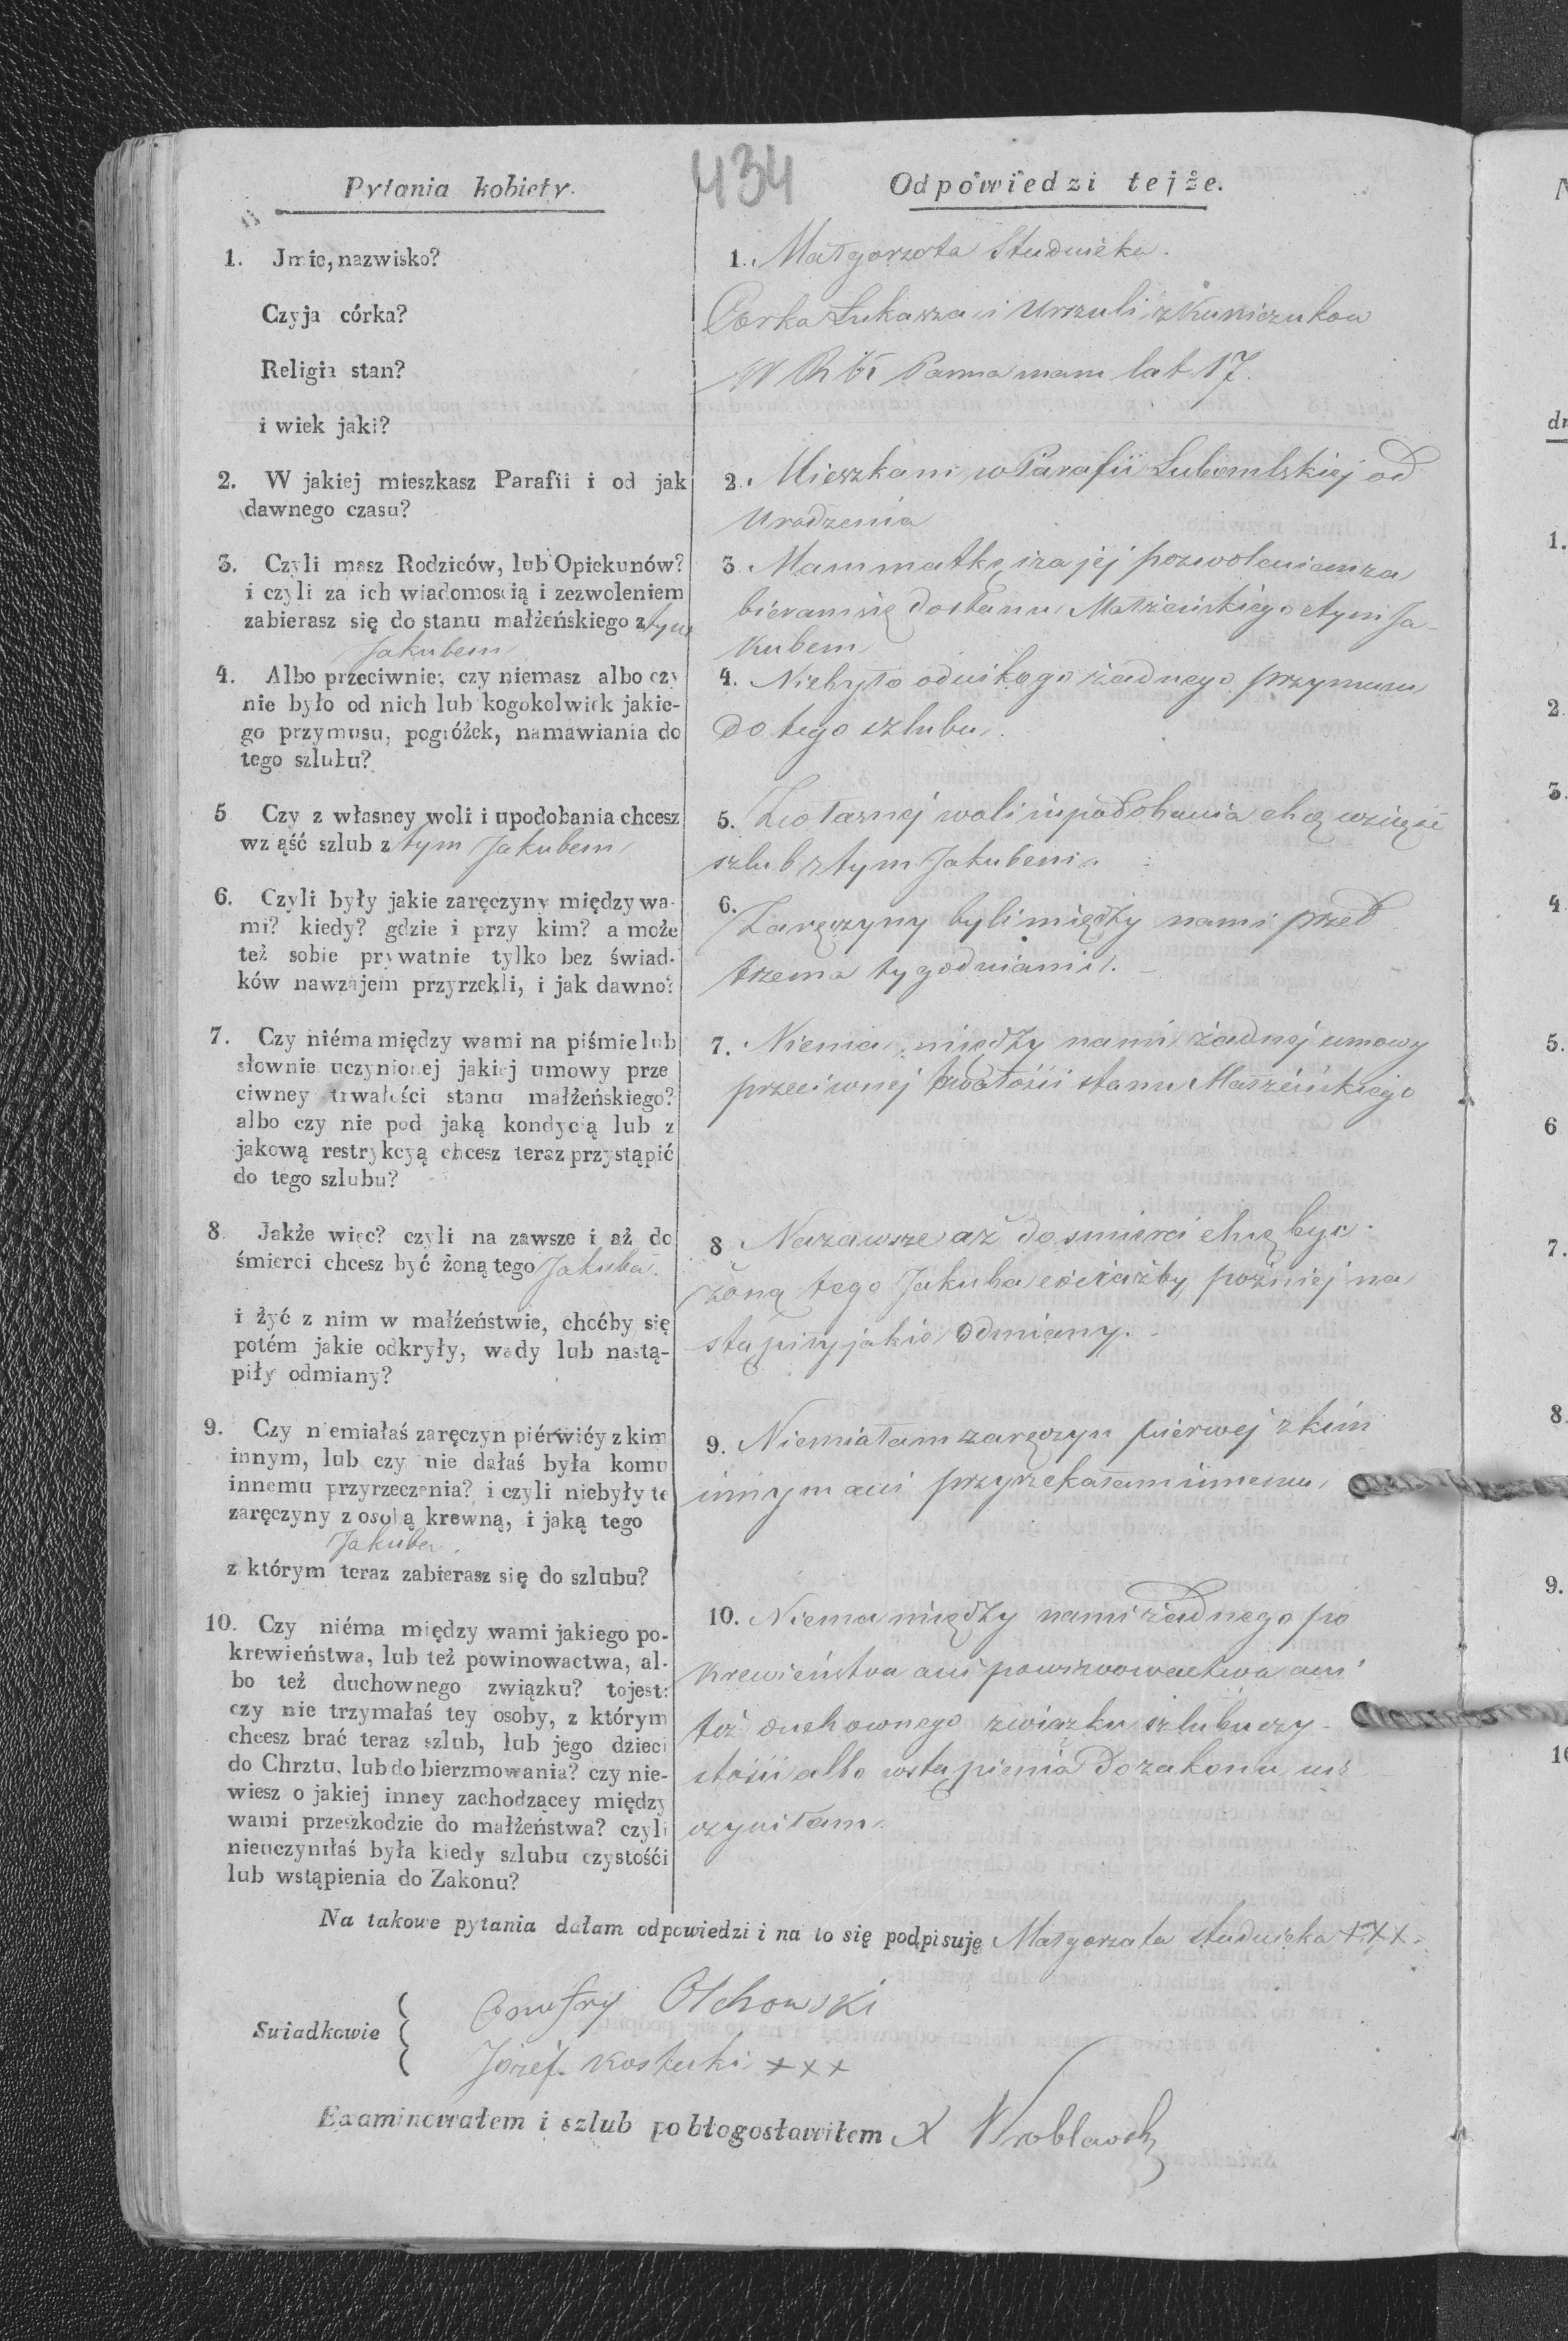 434
Pytania kobiety.
1. Jmie, nazwisko?
Czyja córka?
Religia stan?
i wiek jaki?
2. W jakiej mieszkasz Parafii i od jak
dawnego czasu?
3. Czyli masz Rodziców, lub Opiekunów?
i czyli za ich wiadomością i zezwoleniem
zabierasz się do stanu małżeńskiego z tym
Jakubem
4. Albo przeciwnie, czy niemasz albo czy
nie było od nich lub kogokolwiek jakie-
go przymusu, pogróżek, namawiania do
tego szlubu?
5 Czy z własney woli i upodobania chcesz
wziąść szlub z tym Jakubem
6. Czyli były jakie zaręczyny między wa-
mi? kiedy? gdzie i przy kim? a może
też sobie prywatnie tylko bez świad-
ków nawzajem przyrzekli, i jak dawno?
7. Czy niéma między wami na piśmie lub
słownie uczynionej jakiej umowy prze
ciwney trwałości stanu małżeńskiego?
albo czy nie pod jaką kondycią lub z
jakową restrykcyą chcesz teraz przystąpić
do tego szlubu?
8. Jakże więc? czyli na zawsze i aż do
śmierci chcesz być żoną tego Jakuba
i żyć z nim w małżeństwie, choćby się
potém jakie odkryły, wady lub nastą-
piły odmiany?
9. Czy niemiałaś zaręczyn piérwićy z kim
innym, lub czy nie dałaś była komu
innemu przyrzeczenia? i czyli niebyły te
zaręczyny z osobą krewną, i jaką tego
Jakuba.
z którym teraz zabierasz się do szlubu?
10. Czy niéma między wami jakiego po-
krewieństwa, lub też powinowactwa, al-
bo też duchownego związku? tojest:
czy nie trzymałaś tey osoby, z którym
chcesz brać teraz szlub, lub jego dzieci
do Chrztu, lub do bierzmowania? czy nie-
wiesz o jakiej inney zachodzącey między
wami przeszkodzie do małżeństwa? czyli
nieuczyniłaś była kiedy szlubu czystośći
lub wstąpienia do Zakonu?
Odpowiedzi tejże.
1. Małgorzata Studnicka.
Corka Łukasza i Urszuli z Kuniczukow
Panna mam lat 17.
2. Mieszkam w Parafii Lubomlskiej od
Urodzenia
3. Mam matkę i za jej pozwoleniem za
bieram się do stanu Małżeńskiego z tym Ja-
kubem
4. Niebyło od nikogo żadnego przymusu
do tego szlubu.
5. Z własnej woli i upodobania chcę wziąść
szlub z tym Jakubem.
6. Zaręczyny byli między nami przed
trzema tygodniami.
7. Niema między nami żadnej umowy
przeciwnej trwałości stanu Małżeńskiego
8 Nazawsze aż do smierci chcę być
żoną tego Jakuba chociażby później na
stąpiły jakie odmiany.
9. Niemiałam zaręczyn pierwej z kim
innym ani przyrzekałam innemu
10. Niema między nami żadnego po
krewieństwa ani powinowactwa ani
też duchownego związku szlubu czy-
stości albo wstąpienia do zakonu nie
czyniłam.
Na takowe pytania dałam odpowiedzi i na to się podpisuję Małgorzata Studnicka +++
Swiadkowie
Onufry Olchowski
Józéf Kostecki +++
Examinowałem i szlub pobłogosławiłem X Wroblewski
N
dn
1.
2.
3.
4.
5.
6
7.
8.
9.
10